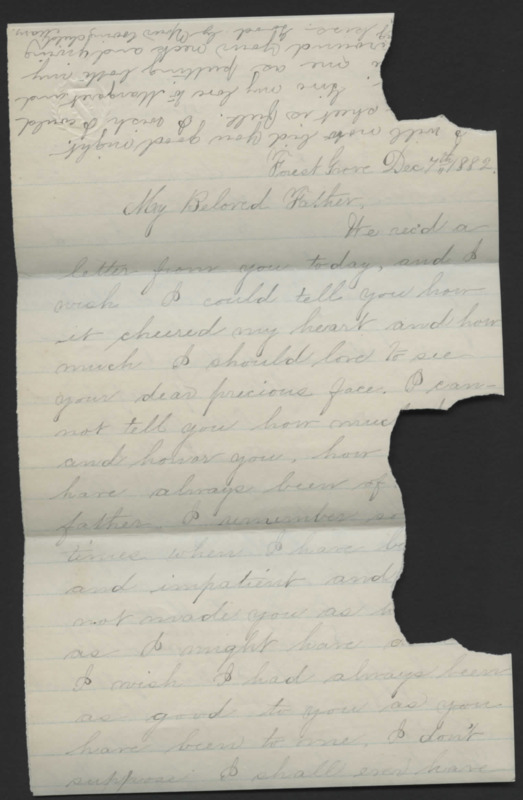 Forest Grove Dec. 7th 1882.
My Beloved Father.
We rec'd a
letter from you today, and I
wish I could tell you how
it cheered my heart and how
much I should love to see
your dear precious face. I can-
not tell you how muc
and honor you. how
have always been of
father. I remember so
times when I have b
and impatient and
not made you as h
as I might have
I wish I had always been
as good to you as you
have been to me. I don't
suppose I shall ever have
I will now bid you good night.
sheet is full. I wish I could
give my love to Margaret and
one as putting both my
around your neck and giving
kiss. Good by Your loving child